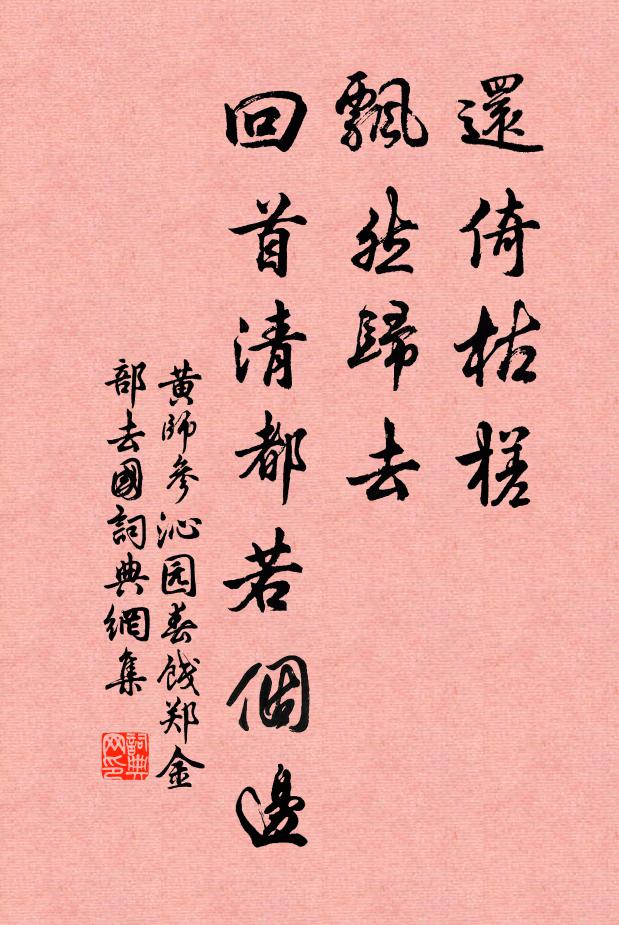 還倚枯槎
飄然歸去
回首清都若個邊
黄師參沁园春餞郑金
部去國詞典網集
詞典
网印